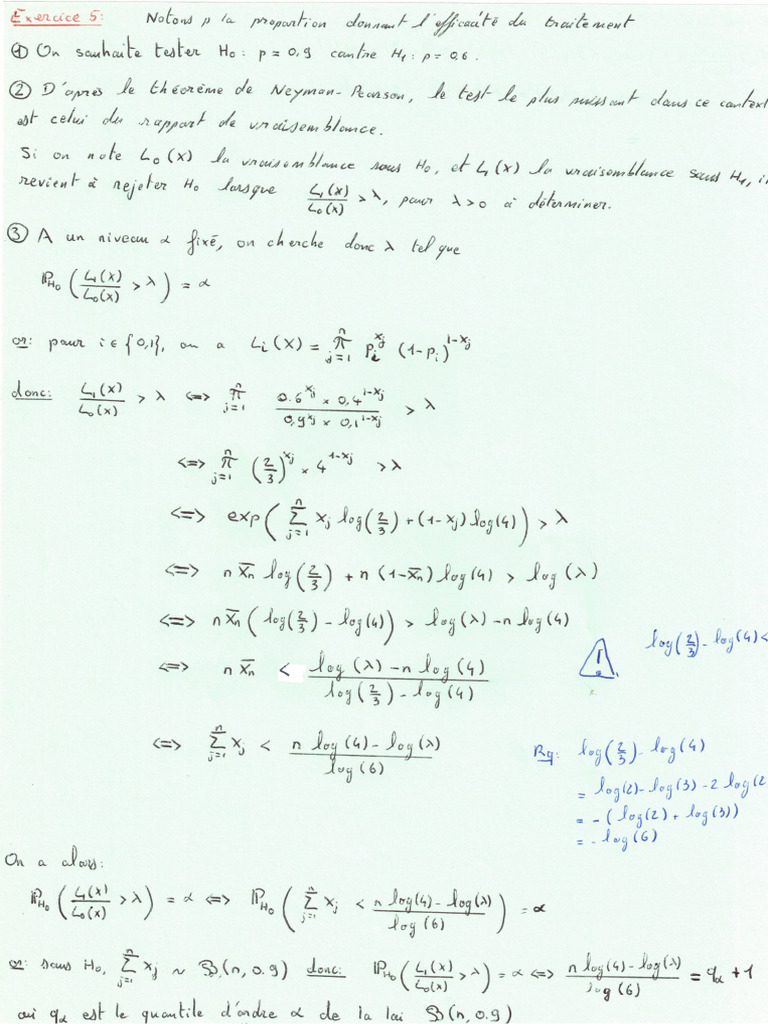 Exercice 5: Notons p la proportion donnant l'efficacité du traitement
① On souhaite tester H₀ : p = 0,9 contre H₁ : p = 0,6.
② D'après le théorème de Neyman-Pearson, le test le plus puissant dans ce context
est celui du rapport de vraisemblance.
Si on note L₀(x) la vraisemblance sous H₀, et L₁(x) la vraisemblance sous H₁, i
revient à rejeter H₀ lorsque L₁(x)/L₀(x) > λ, pour λ>0 à déterminer.
③ A un niveau α fixé, on cherche donc λ tel que
ℙ_H₀ ( L₁(x)/L₀(x) > λ ) = α
or: pour i ∈ {0,1}, on a Lᵢ(x) = ∏_{j=1}^{n} pᵢ^{xⱼ} (1-pᵢ)^{1-xⱼ}
donc: L₁(x)/L₀(x) > λ <=> ∏_{j=1}^{n} (0.6^{xⱼ} × 0,4^{1-xⱼ})/(0,9^{xⱼ} × 0,1^{1-xⱼ}) > λ
<=> ∏_{j=1}^{n} (2/3)^{xⱼ} × 4^{1-xⱼ} > λ
<=> exp( ∑_{j=1}^{n} xⱼ log(2/3) + (1-xⱼ) log(4) ) > λ
<=> n X̄ₙ log(2/3) + n (1-X̄ₙ) log(4) > log(λ)
<=> n X̄ₙ ( log(2/3) - log(4) ) > log(λ) - n log(4)
<=> n X̄ₙ < (log(λ) - n log(4))/(log(2/3) - log(4))
! log(2/3) - log(4) <
<=> ∑_{j=1}^{n} xⱼ < (n log(4) - log(λ))/log(6)
Rq: log(2/3) - log(4)
= log(2) - log(3) - 2 log(2
= - (log(2) + log(3))
= - log(6)
On a alors:
ℙ_H₀ ( L₁(x)/L₀(x) > λ ) = α <=> ℙ_H₀ ( ∑_{j=1}^{n} xⱼ < (n log(4) - log(λ))/log(6) ) = α
or: sous H₀, ∑_{j=1}^{n} xⱼ ~ B(n, 0.9) donc: ℙ_H₀ ( L₁(x)/L₀(x) > λ ) = α <=> (n log(4) - log(λ))/log(6) = q_α + 1
où q_α est le quantile d'ordre α de la loi B(n, 0.9)